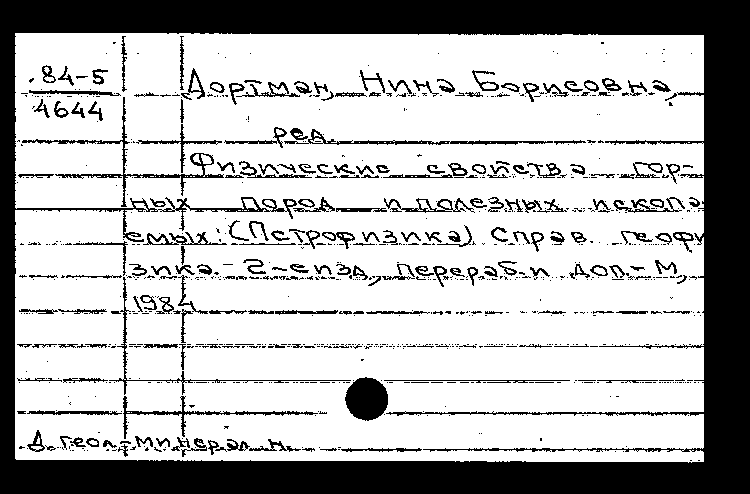 84-5
4644
Дортман, Нина Борисовна,
ред.
Физические свойства гор-
ных пород и полезных ископа
емых: (Петрофизика) Справ. геофи
зика. - 2-е изд, перераб. и доп. - М,
1984
Д. геол.-минерал. н.